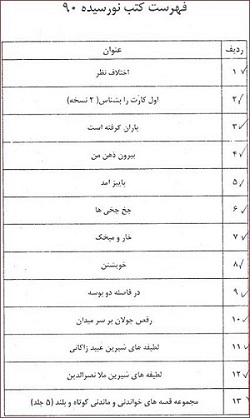 فهرست کتب نورسیده ۹۰
ردیف عنوان
۱ اختلاف نظر
۲ اول کارت را بشناس( ۲ نسخه)
۳ باران گرفته است
۴ بیرون ذهن من
۵ پاییز امد
۶ چخ چخی ها
۷ خار و میخک
۸ خویشتن
۹ در فاصله دو بوسه
۱۰ رقص جولان بر سر میدان
۱۱ لطیفه های شیرین عبید زاکانی
۱۲ لطیفه های شیرین ملا نصرالدین
۱۳ مجموعه قصه های خواندنی و ماندنی کوتاه و بلند (۵ جلد)